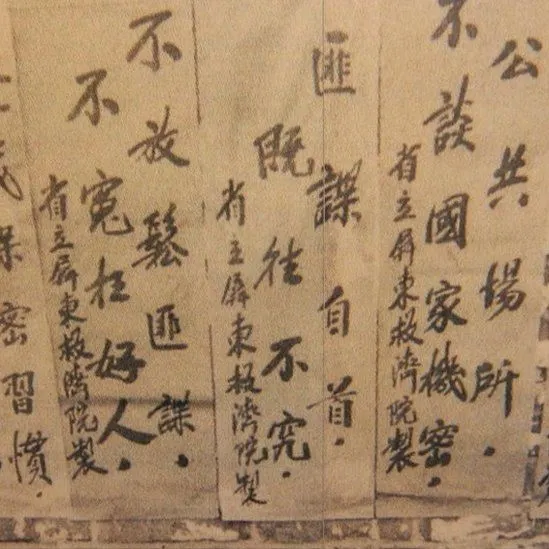 公共場所，
不談國家機密。
省立屏東救濟院製
匪諜自首，
既往不究。
省立屏東救濟院製
不放鬆匪諜，
不冤枉好人。
省立屏東救濟院製
保密習慣。